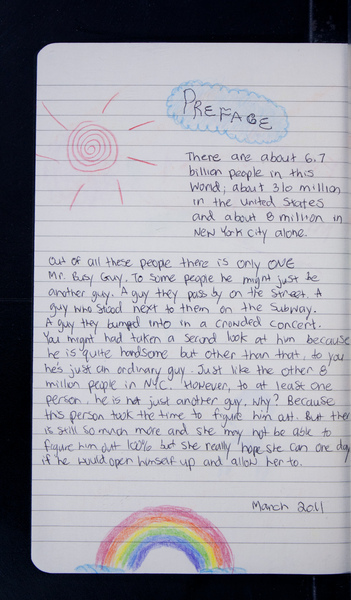 PREFACE
There are about 6.7
billion people in this
world, about 310 million
in the United States
and about 8 million in
New York City alone.
Out of all these people there is only ONE
Mr. Busy Guy. To some people he might just be
another guy. A guy they pass by on the street. A
guy who stood next to them on the subway.
A guy they bumped into in a crowded concert.
You might had taken a second look at him because
he is quite handsome but other than that, to you
he's just an ordinary guy. Just like the other 8
million people in NYC. However, to at least one
person, he is not just another guy. Why? Because
this person took the time to figure him out. But there
is still so much more and she may not be able to
figure him out 100% but she really hope she can one day
if he would open himself up and allow her to.
March 2011